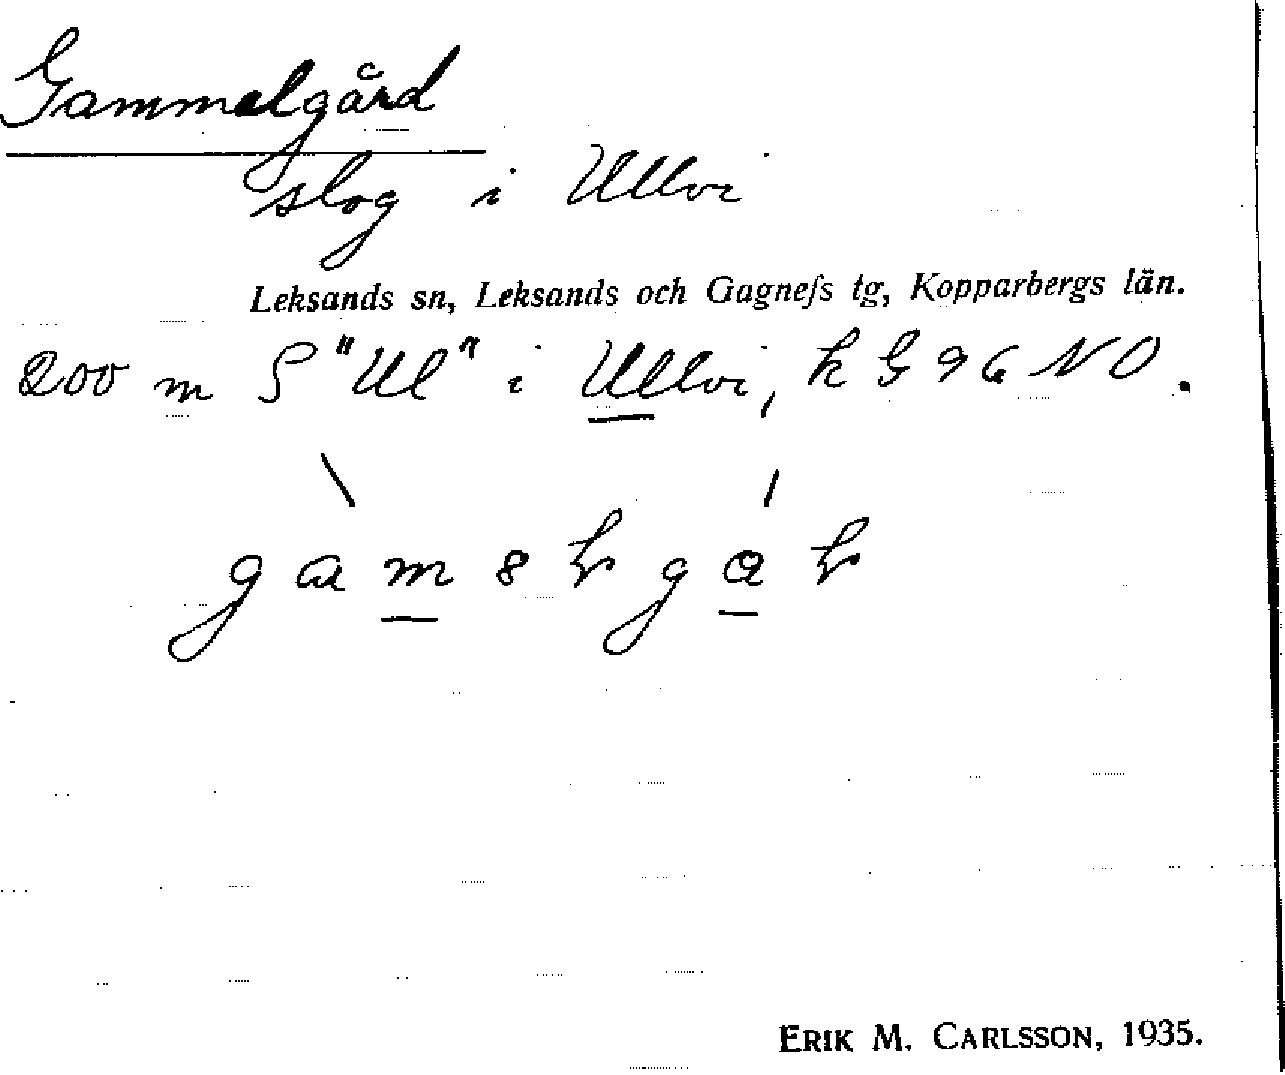 Gammelgård
slog i Ullvi
Leksands sn, Leksands och Gagnefs tg, Kopparbergs län.
200 m S "Ul" i Ullvi, k G 96 NO.
Erik M. Carlsson, 1935.